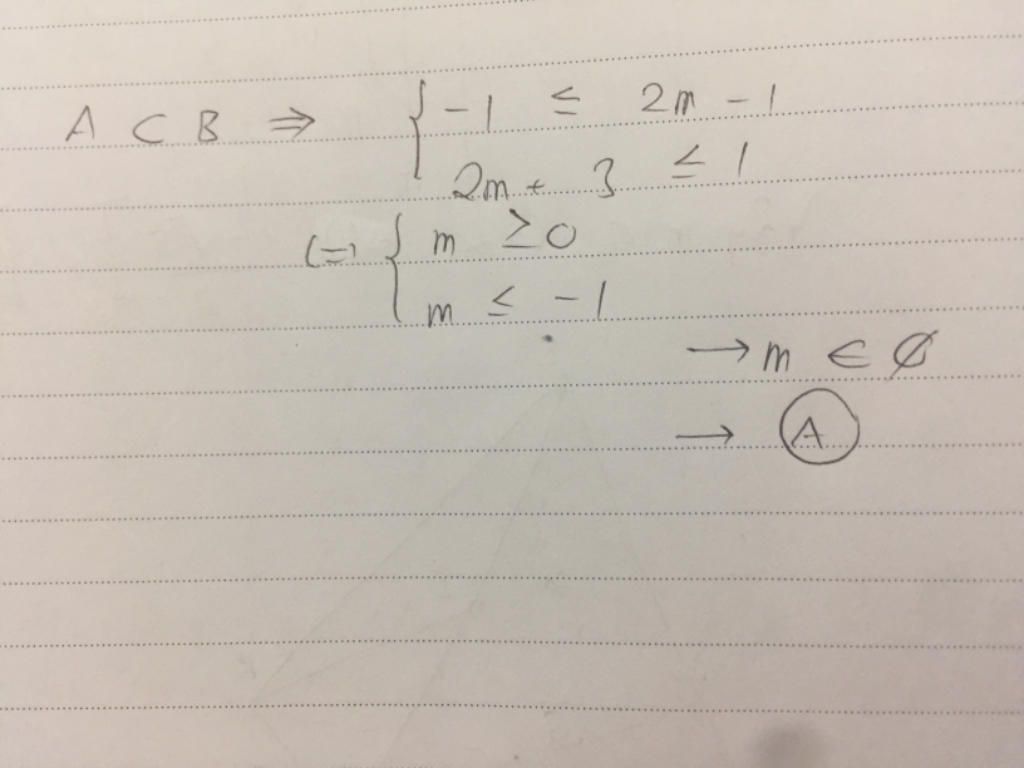 A ⊂ B ⇒ { -1 ≤ 2m - 1
2m + 3 ≤ 1
(=) { m ≥ 0
m ≤ -1
→ m ∈ ∅
→ A